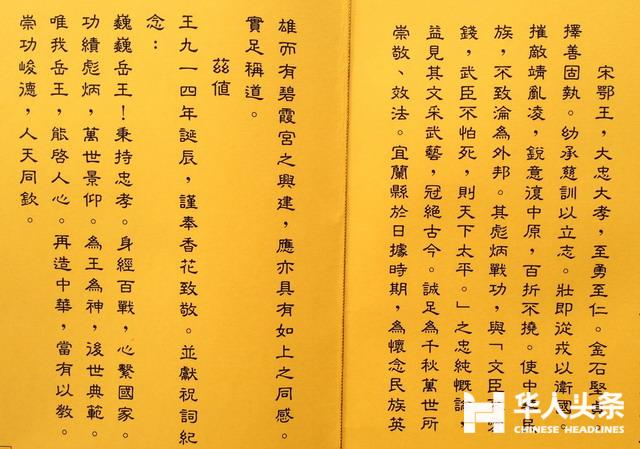 宋鄂王，大忠大孝，至勇至仁。金石堅
擇善固執。幼承慈訓以立志。壯即從戎以衛國。
摧敵靖亂凌，銳意復中原，百折不撓。使中民
族，不致淪為外邦。其彪炳戰功，與「文臣
錢，武臣不怕死，則天下太平。」之忠純慨論，
益見其文采武藝，冠絕古今。誠足為千秋萬世所
崇敬、效法。宜蘭縣於日據時期，為懷念民族英
雄而有碧霞宮之興建，應亦具有如上之同感。
實足稱道。
茲值
王九一四年誕辰，謹奉香花致敬。並獻祝詞紀
念：
巍巍岳王！秉持忠孝。身經百戰，心繫國家。
功績彪炳，萬世景仰。為王為神，後世典範。
唯我岳王，能啓人心。再造中華，當有以教。
崇功峻德，人天同欽。
华人头条
CHINESE HEADLINES